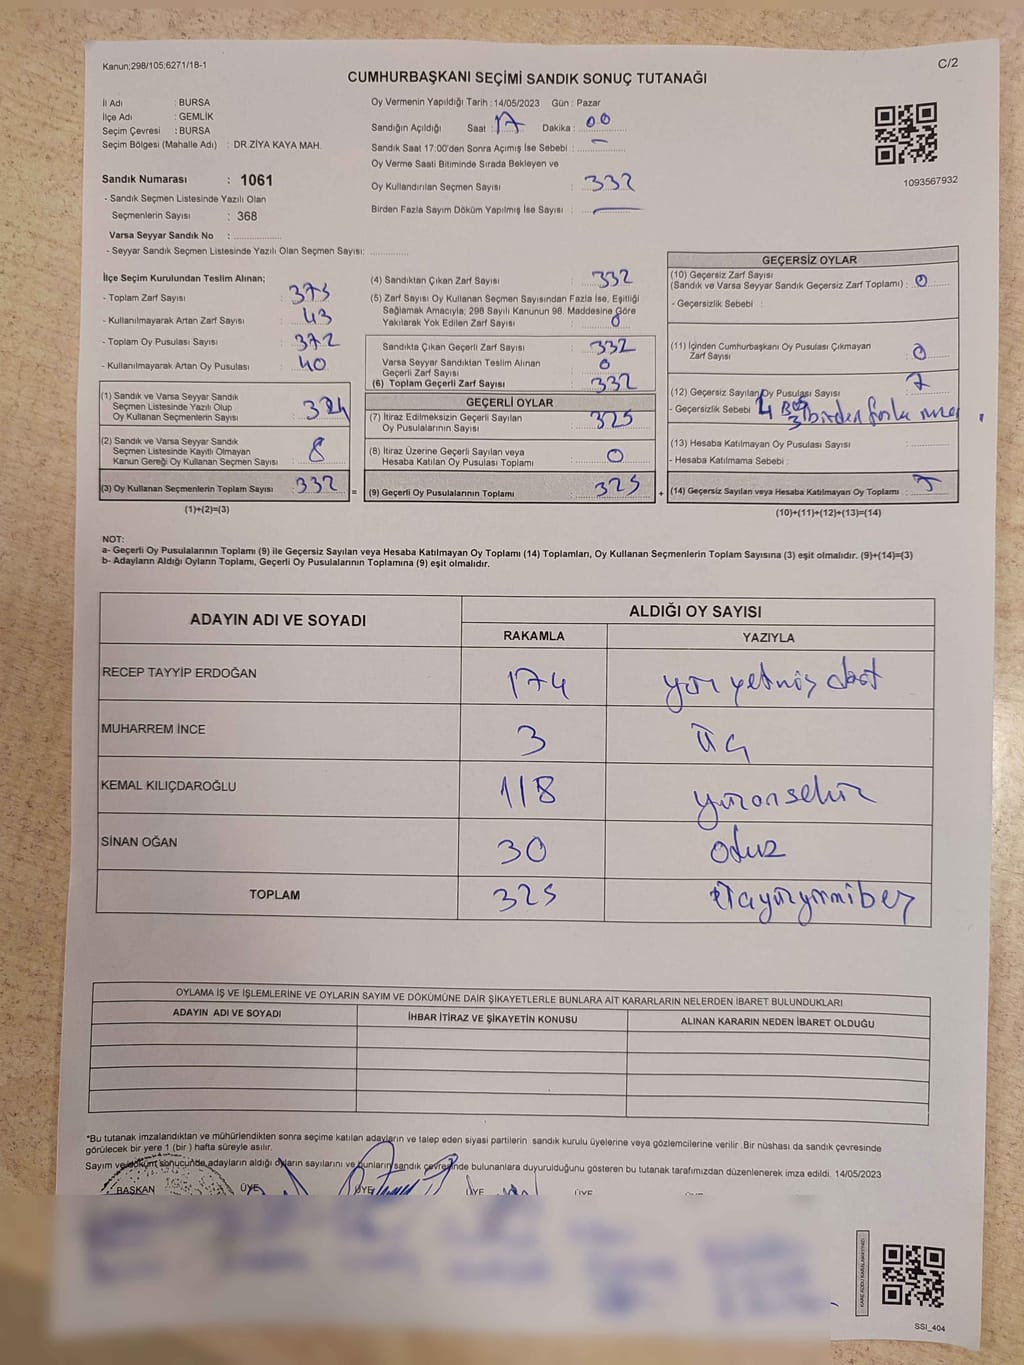 Kanun;298/105;6271/18-1
C/2
CUMHURBAŞKANI SEÇİMİ SANDIK SONUÇ TUTANAĞI
İl Adı : BURSA
İlçe Adı : GEMLİK
Seçim Çevresi : BURSA
Seçim Bölgesi (Mahalle Adı) : DR.ZİYA KAYA MAH.
Oy Vermenin Yapıldığı Tarih : 14/05/2023 Gün : Pazar
Sandığın Açıldığı Saat : 17 Dakika : 00
Sandık Saat 17:00'den Sonra Açımış İse Sebebi : –
Oy Verme Saati Bitiminde Sırada Bekleyen ve
Oy Kullandırılan Seçmen Sayısı : 332
Birden Fazla Sayım Döküm Yapılmış İse Sayısı : —
1093567932
Sandık Numarası : 1061
- Sandık Seçmen Listesinde Yazılı Olan
Seçmenlerin Sayısı : 368
Varsa Seyyar Sandık No :
- Seyyar Sandık Seçmen Listesinde Yazılı Olan Seçmen Sayısı:
İlçe Seçim Kurulundan Teslim Alınan;
- Toplam Zarf Sayısı : 375
- Kullanılmayarak Artan Zarf Sayısı : 43
- Toplam Oy Pusulası Sayısı : 372
- Kullanılmayarak Artan Oy Pusulası : 40
(1) Sandık ve Varsa Seyyar Sandık
Seçmen Listesinde Yazılı Olup
Oy Kullanan Seçmenlerin Sayısı : 324
(2) Sandık ve Varsa Seyyar Sandık
Seçmen Listesinde Kayıtlı Olmayan
Kanun Gereği Oy Kullanan Seçmen Sayısı : 8
(3) Oy Kullanan Seçmenlerin Toplam Sayısı : 332
(1)+(2)=(3)
(4) Sandıktan Çıkan Zarf Sayısı : 332
(5) Zarf Sayısı Oy Kullanan Seçmen Sayısından Fazla İse, Eşitliği
Sağlamak Amacıyla; 298 Sayılı Kanunun 98. Maddesine Göre
Yakılarak Yok Edilen Zarf Sayısı : 0
Sandıkta Çıkan Geçerli Zarf Sayısı : 332
Varsa Seyyar Sandıktan Teslim Alınan
Geçerli Zarf Sayısı : 0
(6) Toplam Geçerli Zarf Sayısı : 332
GEÇERLİ OYLAR
(7) İtiraz Edilmeksizin Geçerli Sayılan
Oy Pusulalarının Sayısı : 325
(8) İtiraz Üzerine Geçerli Sayılan veya
Hesaba Katılan Oy Pusulası Toplamı : 0
= (9) Geçerli Oy Pusulalarının Toplamı : 325
GEÇERSİZ OYLAR
(10) Geçersiz Zarf Sayısı
(Sandık ve Varsa Seyyar Sandık Geçersiz Zarf Toplamı) : 0
- Geçersizlik Sebebi :
(11) İçinden Cumhurbaşkanı Oy Pusulası Çıkmayan
Zarf Sayısı : 0
(12) Geçersiz Sayılan Oy Pusulası Sayısı 7
- Geçersizlik Sebebi 4 Boş 3 birden fazla
(13) Hesaba Katılmayan Oy Pusulası Sayısı :
- Hesaba Katılmama Sebebi :
+ (14) Geçersiz Sayılan veya Hesaba Katılmayan Oy Toplamı : 7
(10)+(11)+(12)+(13)=(14)
NOT:
a- Geçerli Oy Pusulalarının Toplamı (9) ile Geçersiz Sayılan veya Hesaba Katılmayan Oy Toplamı (14) Toplamları, Oy Kullanan Seçmenlerin Toplam Sayısına (3) eşit olmalıdır. (9)+(14)=(3)
b- Adayların Aldığı Oyların Toplamı, Geçerli Oy Pusulalarının Toplamına (9) eşit olmalıdır.
ADAYIN ADI VE SOYADI
ALDIĞI OY SAYISI
RAKAMLA YAZIYLA
RECEP TAYYİP ERDOĞAN 174 yüz yetmiş dört
MUHARREM İNCE 3 üç
KEMAL KILIÇDAROĞLU 118 yüzonsekiz
SİNAN OĞAN 30 otuz
TOPLAM 325 üçyüzyirmibeş
OYLAMA İŞ VE İŞLEMLERİNE VE OYLARIN SAYIM VE DÖKÜMÜNE DAİR ŞİKAYETLERLE BUNLARA AİT KARARLARIN NELERDEN İBARET BULUNDUKLARI
ADAYIN ADI VE SOYADI İHBAR İTİRAZ VE ŞİKAYETİN KONUSU ALINAN KARARIN NEDEN İBARET OLDUĞU
*Bu tutanak imzalandıktan ve mühürlendikten sonra seçime katılan adayların ve talep eden siyasi partilerin sandık kurulu üyelerine veya gözlemcilerine verilir .Bir nüshası da sandık çevresinde
görülecek bir yere 1 (bir ) hafta süreyle asılır.
Sayım ve döküm sonucunda adayların aldığı oyların sayılarını ve bunların sandık çevresinde bulunanlara duyurulduğunu gösteren bu tutanak tarafımızdan düzenlenerek imza edildi. 14/05/2023
BAŞKAN ÜYE ÜYE ÜYE ÜYE
SSI_404